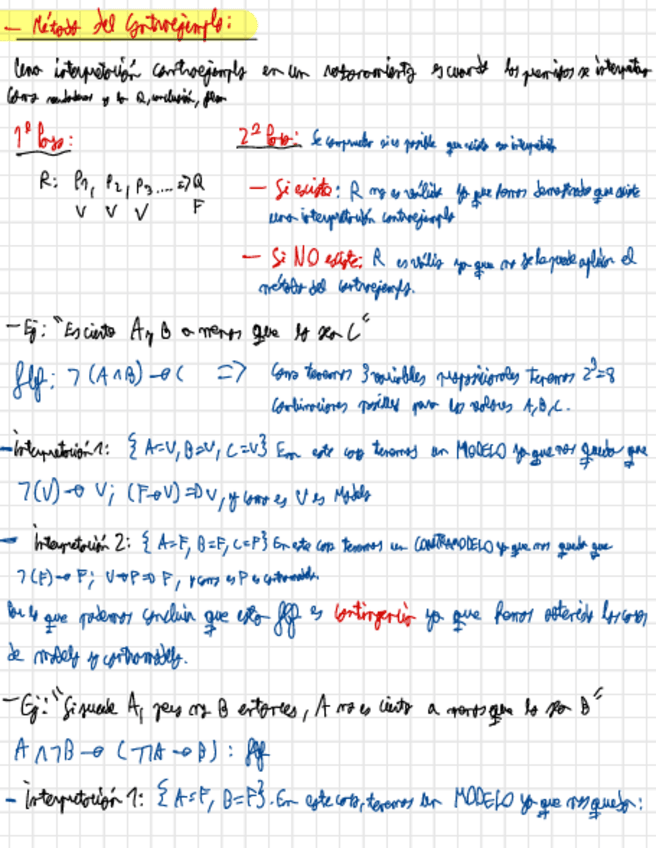 - Método del Contraejemplo:
Una interpretación contraejemplo en un razonamiento es cuando las premisas se interpretan
como verdaderas y la Q, conclusión, falsa
1º Paso:
2º Paso: Se comprueba si es posible que exista su interpretación
R: P1, P2, P3.... => Q
V V V F
- Si existe: R no es válido ya que hemos demostrado que existe
una interpretación contraejemplo
- Si NO existe: R es válido ya que no se le puede aplicar el
método del contraejemplo.
- Ej: "Es cierto A y B a menos que lo sea C"
fbf: ¬(A∧B)→C => Como tenemos 3 variables proposicionales tenemos 2³=8
combinaciones posibles para los valores A, B, C.
- Interpretación 1: {A=V, B=V, C=V} En este caso tenemos un MODELO ya que nos queda que
¬(V)→V; (F→V)=>V, y como es V es Modelo
- Interpretación 2: {A=F, B=F, C=F} En este caso tenemos un CONTRAMODELO ya que nos queda que
¬(F)→F; V→F=>F, y como es F es contramodelo.
Por lo que podemos concluir que esta fbf es contingencia ya que hemos obtenido los casos
de modelo y contramodelo.
- Ej: "Si sucede A, pero no B entonces, A no es cierto a menos que lo sea B"
A∧¬B→(¬¬A→B): fbf
- Interpretación 1: {A=F, B=F}. En este caso, tenemos un MODELO ya que nos queda: